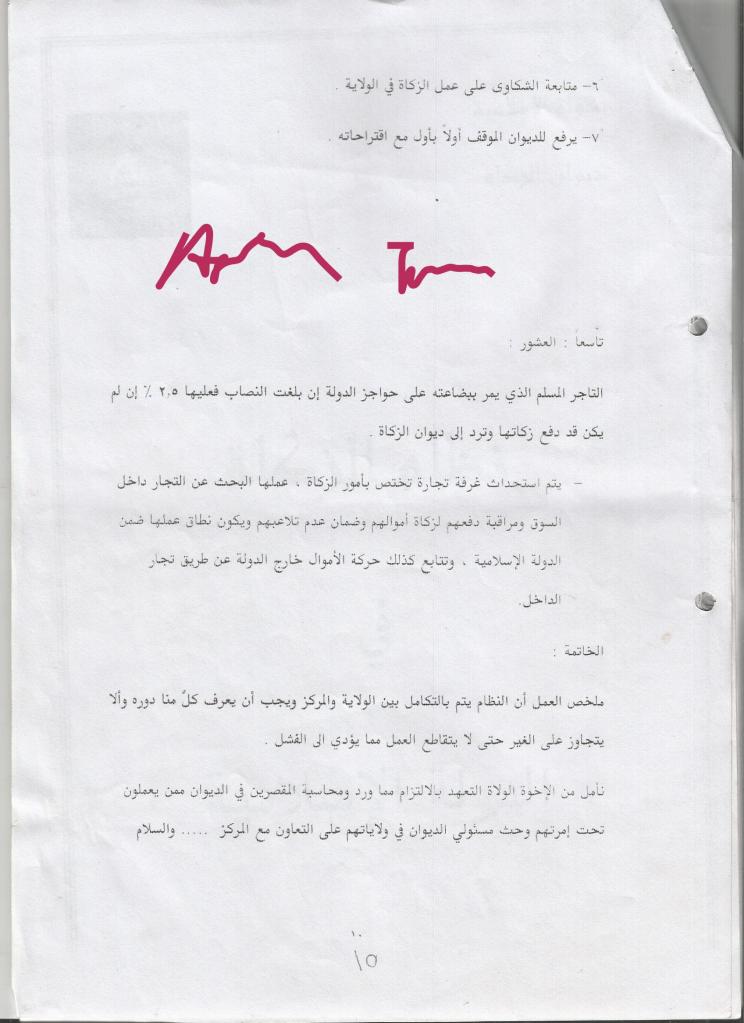 ٦- متابعة الشكاوى على عمل الزكاة في الولاية .
٧- يرفع للديوان الموقف أولاً بأول مع اقتراحاته .
تاسعاً : العشور :
التاجر المسلم الذي يمر ببضاعته على حواجز الدولة إن بلغت النصاب فعليها ٢,٥ ٪ إن لم
يكن قد دفع زكاتها وترد إلى ديوان الزكاة .
- يتم استحداث غرفة تجارة تختص بأمور الزكاة ، عملها البحث عن التجار داخل
السوق ومراقبة دفعهم لزكاة أموالهم وضمان عدم تلاعبهم ويكون نطاق عملها ضمن
الدولة الإسلامية ، وتتابع كذلك حركة الأموال خارج الدولة عن طريق تجار
الداخل.
الخاتمة :
ملخص العمل أن النظام يتم بالتكامل بين الولاية والمركز ويجب أن يعرف كلٌ منا دوره وألا
يتجاوز على الغير حتى لا يتقاطع العمل مما يؤدي الى الفشل .
نأمل من الإخوة الولاة التعهد بالالتزام مما ورد ومحاسبة المقصرين في الديوان ممن يعملون
تحت إمرتهم وحث مسئولي الديوان في ولاياتهم على التعاون مع المركز ..... والسلام
١٠
١٥